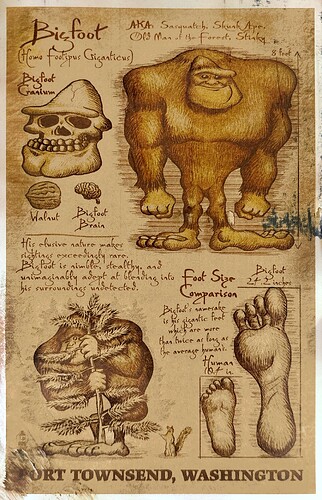 Bigfoot
(Homo Footipus Giganticus)
AKA: Sasquatch, Skunk Ape,
Old Man of the Forest, Stinky
8 feet
Bigfoot
Cranium
Walnut
Bigfoot
Brain
His elusive nature makes
sightings exceedingly rare.
Bigfoot is nimble, stealthy, and
unimaginably adept at blending into
his surroundings undetected.
Foot Size
Comparison
Bigfoot
inches
Bigfoot's namesake
is his gigantic feet
which are more
than twice as long as
the average human.
Human
in.
PORT TOWNSEND, WASHINGTON